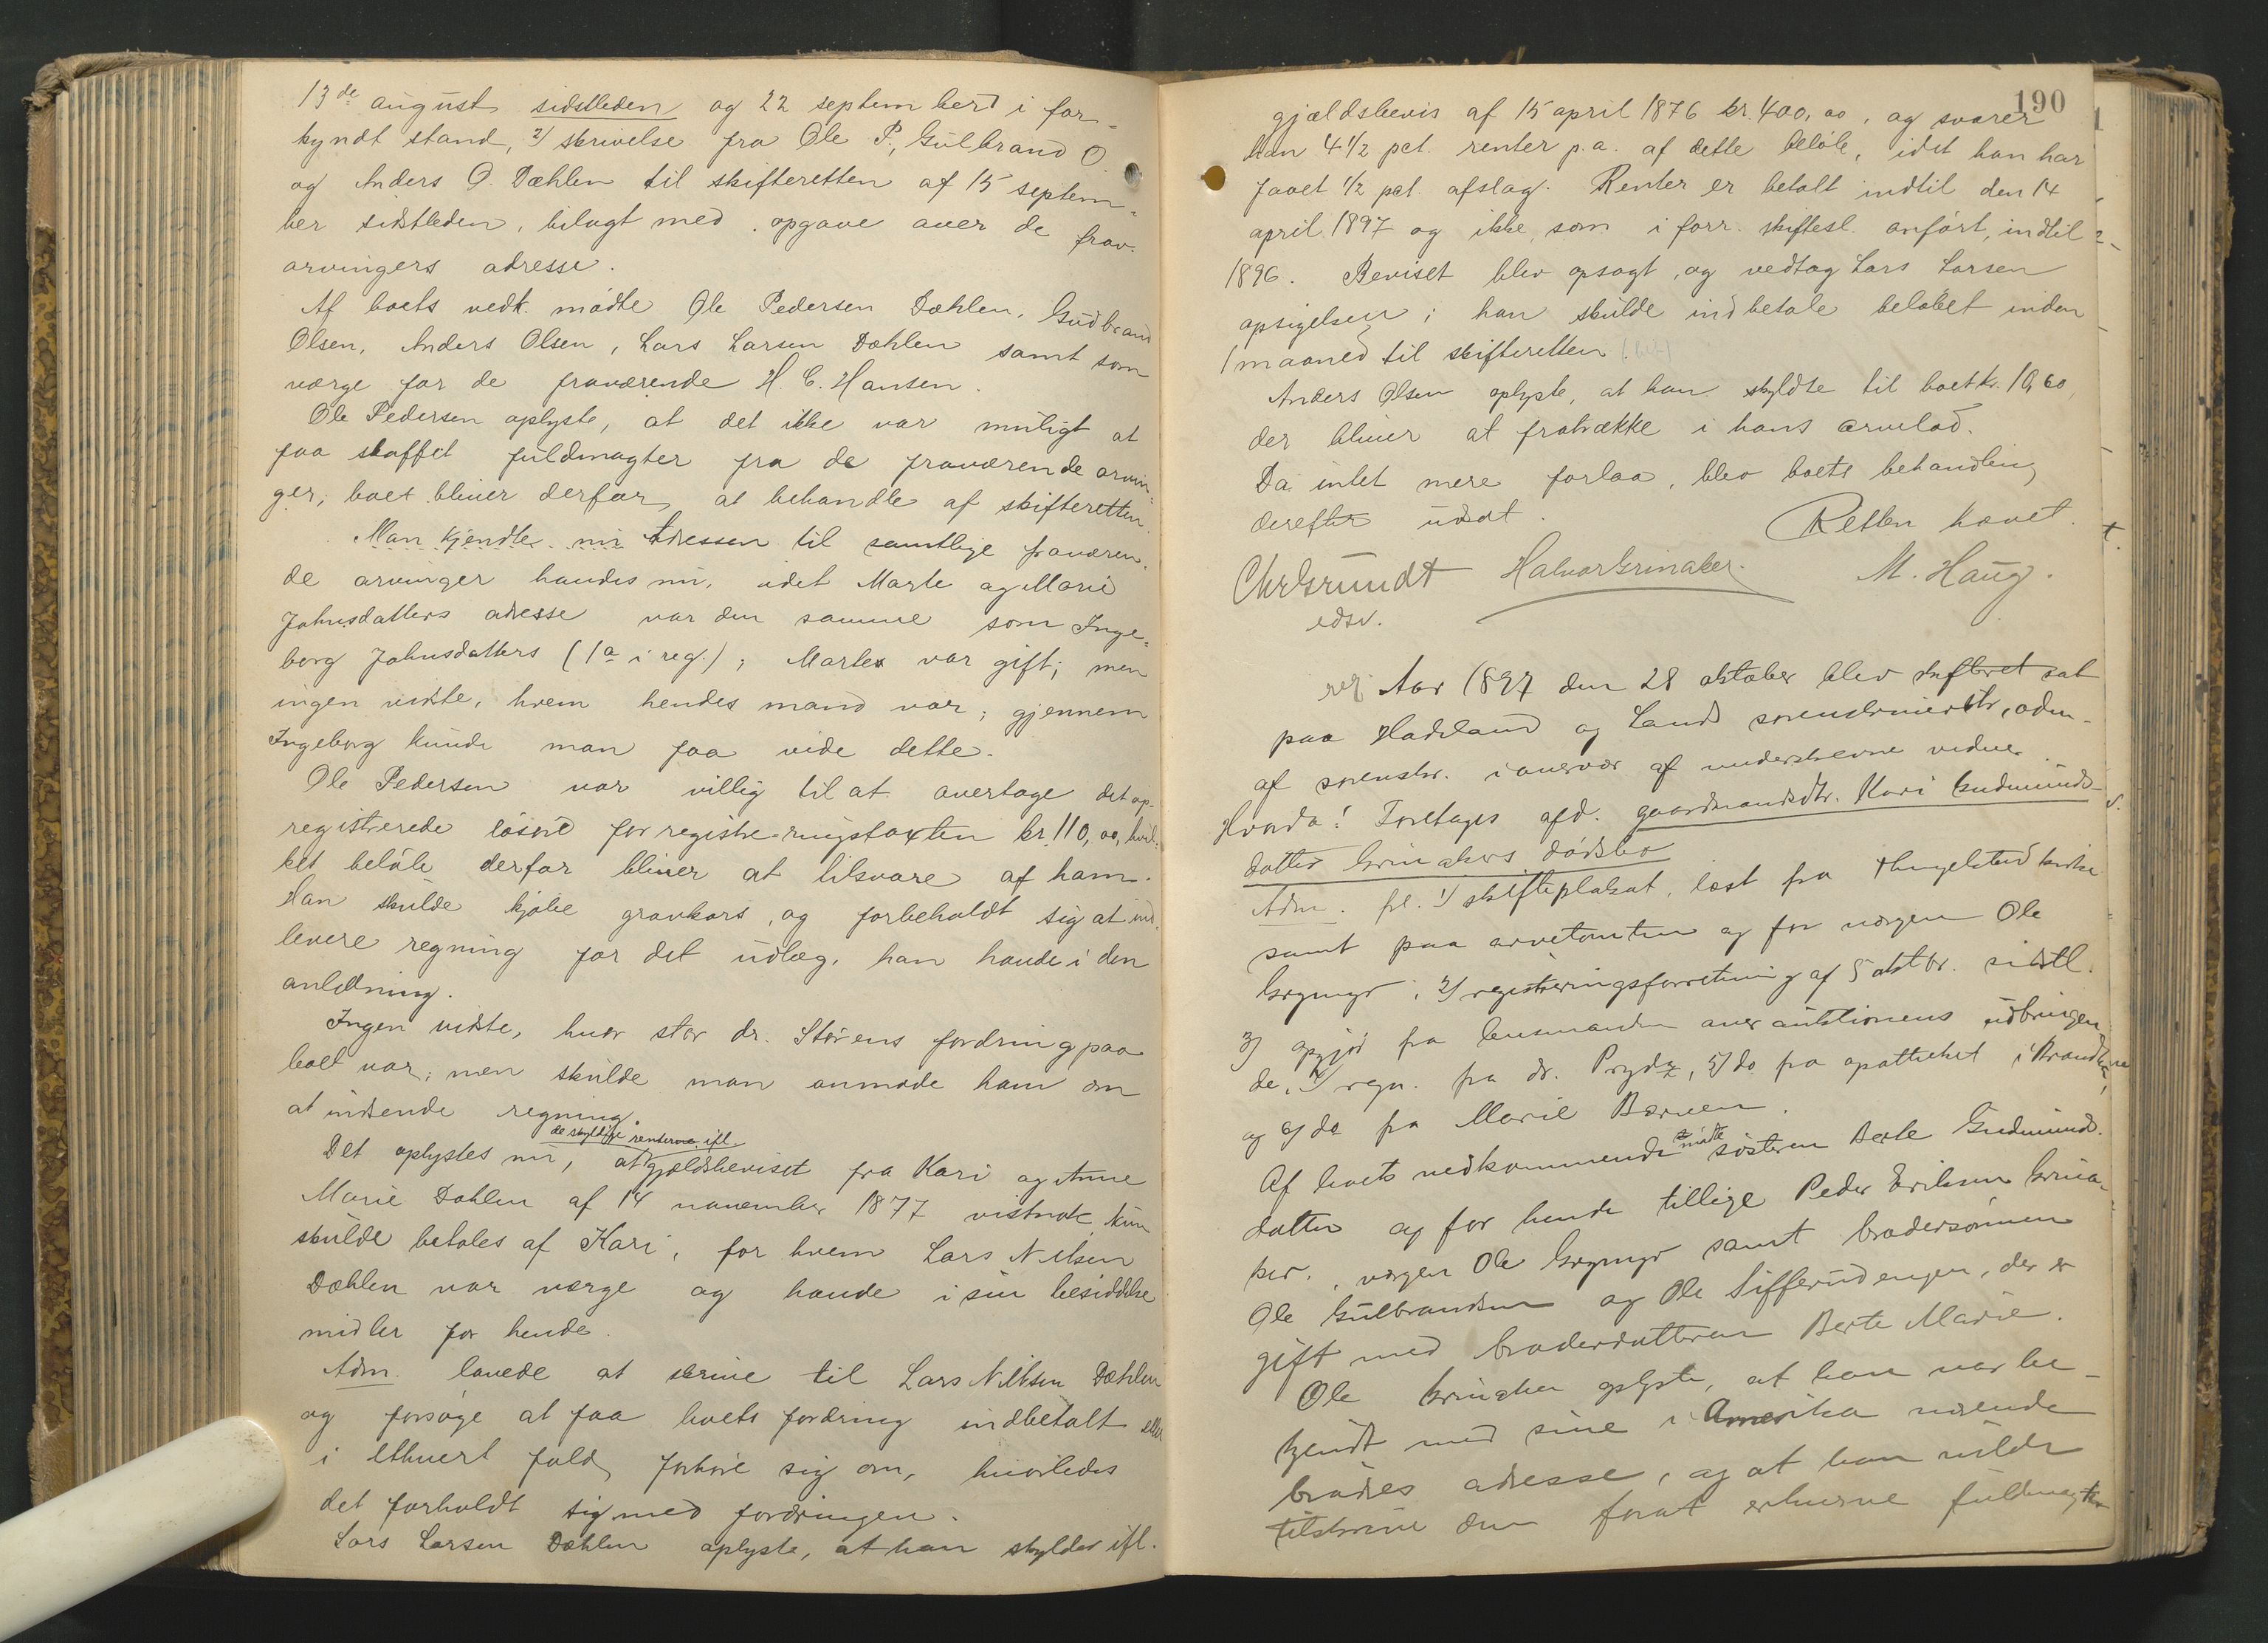 13de august sidstleden og 22 septemberd i for-
kyndt stand, 2/ skrivelse fra Ole P., Gulbrand O.
og Anders O. Dæhlen til skifteretten af 15 septem-
ber sidstleden, bilagt med opgave over de frav.
arvingers adresse.
Af boets vedk. mødte Ole Pedersen Dæhlen, Gudbrand
Olsen, Anders Olsen, Lars Larsen Dæhlen samt som
værge for de fraværende H. C. Hansen.
Ole Pedersen oplyste, at det ikke var muligt at
faa skaffet fuldmagter fra de fraværende arvin-
ger; boet bliver derfor at behandle af skifteretten.
Man kjendte nu adressen til samtlige fraværen-
de arvinger haudes nu, idet Marte og Marie
Johnsdatters adresse var den samme som Inge-
borg Johnsdatters (1a i reg.); Marte var gift; men
ingen vidste, hvem hendes mand var; gjennem
Ingeborg kunde man faa vide dette.
Ole Pedersen var villig til at overtage det op-
registrerede løsøre for registreringstaxten kr. 110,00, hvil-
ket beløb derfor bliver at tilsvare af ham.
Han skulde kjøbe gravkors, og forbeholdt sig at ind-
levere regning for det udlæg, han havde i den
anledning.
Ingen vidste, hvor stor dr. Störens fordring paa
boet var; men skulde man anmode ham om
at indsende regning.
de skyldige renterne ifl.
Det oplystes nu, at gjældsbeviset fra Kari og Anne
Marie Dæhlen af 14 november 1877 vistnok kun
skulde betales af Kari, for hvem Lars Nilsen
Dæhlen var værge og havde i sin besiddelse
midler for hende.
Adm. lovede at skrive til Lars Nilsen Dæhlen
og forsøge at faa boets fordring indbetalt eller
i ethvert fald forhøre sig om, hvorledes
det forholdt sig med fordringen.
Lars Larsen Dæhlen oplyste, at han skylder ifl.
190
gjældsbevis af 15 april 1876 kr. 400,00, og svarer
han 4 1/2 pct. renter p.a. af dette beløb, idet han har
faaet 1/2 pct. afslag. Renter er betalt indtil den 14
april 1897 og ikke, som i forr. skiftesl. anført, indtil
1896. Beviset blev opsagt, og vedtog Lars Larsen
opsigelsen; han skulde indbetale beløbet inden
1 maaned til skifteretten.
Anders Olsen oplyste, at han skyldte til boet kr. 10,60,
der bliver at fratrække i hans arvelod.
Da intet mere forlaa, blev boets behandling
derefter udsat.
Retten hævet.
Chr Grundt Halvor Grinaker. M. Haug.
edsv.
reg. Aar 1897 den 28 oktober blev skifteret sat
paa Hadeland og Lands sorenskriverktr., adm.
af sorenskr. i overvær af underskrevne vidner.
Hvorda: Foretages afd. gaardmandsdtr. Kari Gudmunds-
datter Grinakers dødsbo
Adm. fr. 1/ skifteplakat, læst fra Tingelstad kirke
samt paa arvetomten og for værgen Ole
Grymyr, 2/ registreringsforretning af 5 oktbr. sidstl.
3/ opgjør fra lensmanden over auktionens udbringen-
de, 4/ regn. fra dr. Prydz, 5/ do fra apotheket i Brandbu
og 6/ do fra Marie Barnen.
Af boets vedkommende mødte søsteren Berte Gudmunds-
datter og for hende tillige Peder Eriksen Grina-
ker, værgen Ole Grymyr samt brodersønnen
Ole Gulbrandsen og Ole Sifferudengen, der er
gift med broderdatteren Berte Marie.
Ole Grinaker oplyste, at han var be-
kjendt med sine i Amerika værende
brødres adresse, og at han vilde
tilskrive dem forat erhverve fuldmagter